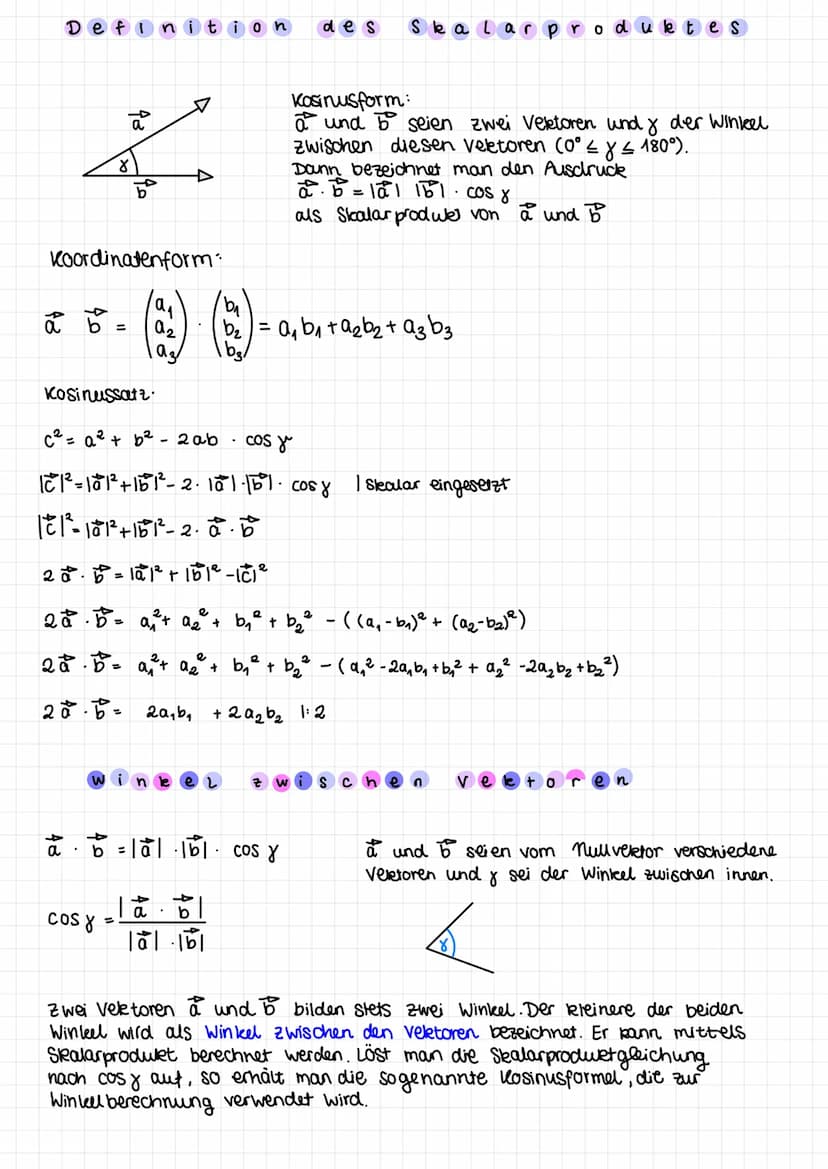 Definition des Skalarproduktes
Kosinusform:
a⃗ und b⃗ seien zwei Vektoren und γ der Winkel
zwischen diesen Vektoren (0° ≤ γ ≤ 180°).
Dann bezeichnet man den Ausdruck
a⃗ · b⃗ = |a⃗| |b⃗| · cos γ
als Skalarprodukt von a⃗ und b⃗
a⃗
γ
b⃗
Koordinatenform:
a⃗ b⃗ = (a₁ a₂ a₃) · (b₁ b₂ b₃) = a₁b₁ + a₂b₂ + a₃b₃
Kosinussatz.
c² = a² + b² - 2ab · cos γ
|c⃗|² = |a⃗|² + |b⃗|² - 2 · |a⃗| · |b⃗| · cos γ | Skalar eingesetzt
|c⃗|² = |a⃗|² + |b⃗|² - 2 · a⃗ · b⃗
2 a⃗ · b⃗ = |a⃗|² + |b⃗|² - |c⃗|²
2 a⃗ · b⃗ = a₁² + a₂² + b₁² + b₂² - ((a₁ - b₁)² + (a₂ - b₂)²)
2 a⃗ · b⃗ = a₁² + a₂² + b₁² + b₂² - (a₁² - 2a₁b₁ + b₁² + a₂² - 2a₂b₂ + b₂²)
2 a⃗ · b⃗ = 2a₁b₁ + 2a₂b₂ |:2
Winkel zwischen Vektoren
a⃗ · b⃗ = |a⃗| · |b⃗| · cos γ
a⃗ und b⃗ seien vom Nullvektor verschiedene
Vektoren und γ sei der Winkel zwischen innen.
cos γ = |a⃗ · b⃗| / |a⃗| · |b⃗|
γ
Zwei Vektoren a⃗ und b⃗ bilden stets zwei Winkel. Der kleinere der beiden
Winkel wird als Winkel zwischen den Vektoren bezeichnet. Er kann mittels
Skalarprodukt berechnet werden. Löst man die Skalarproduktgleichung
nach cos γ auf, so erhält man die sogenannte Kosinusformel, die zur
Winkelberechnung verwendet wird.